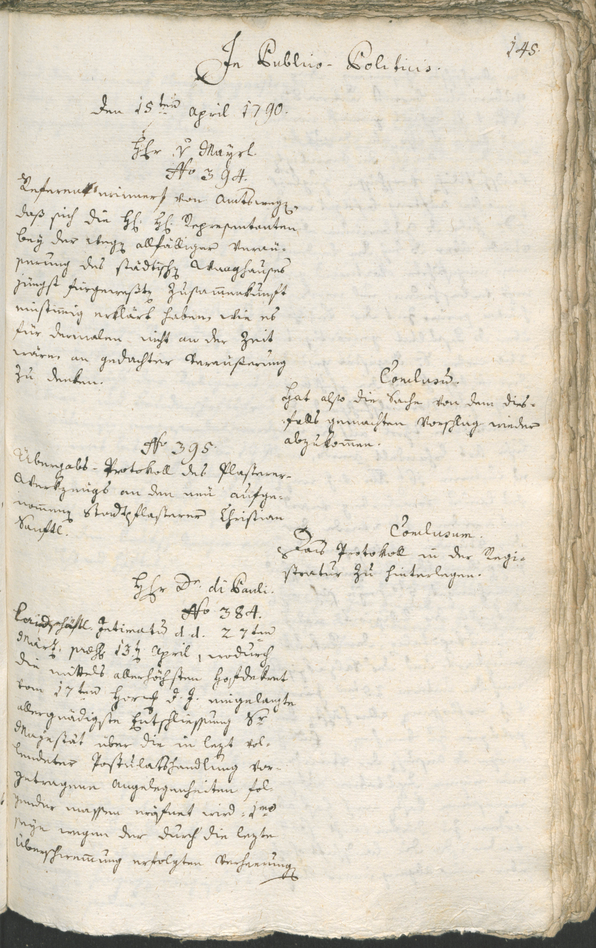 145
In Publico-Politicis.
den 15ten April 1790.
Hhr v Mayrl.
No 394.
Referent erinnert von Amtswegen,
daß sich die Hh. Hh. Repräsentanten
bey der wegen allfälliger Veräu-
serung des städtischen Waaghauses
jüngst fürgeweßten Zusammenkunft
einstimig erklärt haben, wie es
für dermalen nicht an der Zeit
wäre, an gedachter Veräußerung
zu denken.
Conclusum.
hat also die Sache von dem dies-
falls gemachten Vorschlag wieder
abzukommen.
No 395.
Übergabs-Protokoll des Pflasterer-
Werkzeugs an den neu aufge-
nommenen Stadtpflasterer Christian
Sanftl.
Conclusum.
Das Protokoll in der Regi-
stratur zu hinterlegen.
Hhr Dr. di Pauli.
No 384.
Landschäftl. Intimatum d. d. 27ten
März, 13ten April, wodurch
die mittels allerhöchsten Hofdekret
vom 17ten Hornung d. J. eingelangte
allergnädigste Entschliessung Sr
Majestät über die in lezt vol-
lendeter Postulatshandlung vor-
getragene Angelegenheiten fol-
gender massen eröfnet wird: 1mo
seye wegen der durch die lezte
Überschwemmung erfolgten Verheerung